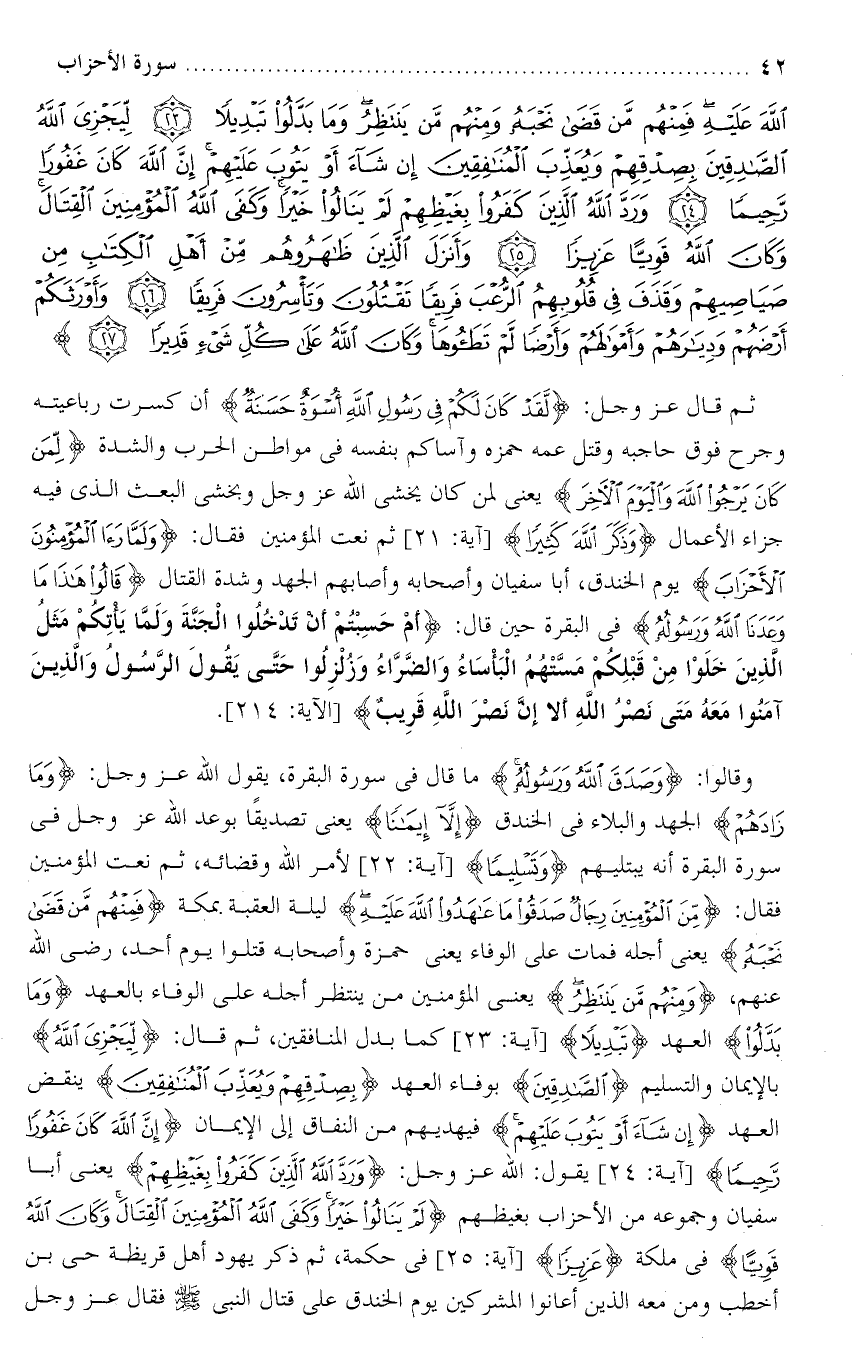 ٤٢ ........................................................................ سورة الأحزاب
ٱللَّهَ عَلَيْهِۖ فَمِنْهُم مَّن قَضَىٰ نَحْبَهُۥ وَمِنْهُم مَّن يَنتَظِرُۖ وَمَا بَدَّلُوا۟ تَبْدِيلًا ۝٢٣ لِّيَجْزِىَ ٱللَّهُ
ٱلصَّـٰدِقِينَ بِصِدْقِهِمْ وَيُعَذِّبَ ٱلْمُنَـٰفِقِينَ إِن شَآءَ أَوْ يَتُوبَ عَلَيْهِمْۚ إِنَّ ٱللَّهَ كَانَ غَفُورًا
رَّحِيمًا ۝٢٤ وَرَدَّ ٱللَّهُ ٱلَّذِينَ كَفَرُوا۟ بِغَيْظِهِمْ لَمْ يَنَالُوا۟ خَيْرًاۚ وَكَفَى ٱللَّهُ ٱلْمُؤْمِنِينَ ٱلْقِتَالَۚ
وَكَانَ ٱللَّهُ قَوِيًّا عَزِيزًا ۝٢٥ وَأَنزَلَ ٱلَّذِينَ ظَـٰهَرُوهُم مِّنْ أَهْلِ ٱلْكِتَـٰبِ مِن
صَيَاصِيهِمْ وَقَذَفَ فِى قُلُوبِهِمُ ٱلرُّعْبَ فَرِيقًا تَقْتُلُونَ وَتَأْسِرُونَ فَرِيقًا ۝٢٦ وَأَوْرَثَكُمْ
أَرْضَهُمْ وَدِيَـٰرَهُمْ وَأَمْوَٰلَهُمْ وَأَرْضًا لَّمْ تَطَـُٔوهَاۚ وَكَانَ ٱللَّهُ عَلَىٰ كُلِّ شَىْءٍ قَدِيرًا ۝٢٧ ﴾
ثم قال عز وجل: ﴿لَّقَدْ كَانَ لَكُمْ فِى رَسُولِ ٱللَّهِ أُسْوَةٌ حَسَنَةٌ﴾ أن كسرت رباعيته
وجرح فوق حاجبه وقتل عمه حمزه وآساكم بنفسه فى مواطن الحرب والشدة ﴿لِّمَن
كَانَ يَرْجُوا۟ ٱللَّهَ وَٱلْيَوْمَ ٱلْأَخِرَ﴾ يعنى لمن كان يخشى الله عز وجل ويخشى البعث الذى فيه
جزاء الأعمال ﴿وَذَكَرَ ٱللَّهَ كَثِيرًا﴾ [آية: ٢١] ثم نعت المؤمنين فقال: ﴿وَلَمَّا رَءَا ٱلْمُؤْمِنُونَ
ٱلْأَحْزَابَ﴾ يوم الخندق، أبا سفيان وأصحابه وأصابهم الجهد وشدة القتال ﴿قَالُوا۟ هَـٰذَا مَا
وَعَدَنَا ٱللَّهُ وَرَسُولُهُۥ﴾ فى البقرة حين قال: ﴿أَمْ حَسِبْتُمْ أَنْ تَدْخُلُوا الْجَنَّةَ وَلَمَّا يَأْتِكُمْ مَثَلُ
الَّذِينَ خَلَوْا مِنْ قَبْلِكُمْ مَسَّتْهُمُ الْبَأْسَاءُ وَالضَّرَّاءُ وَزُلْزِلُوا حَتَّى يَقُولَ الرَّسُولُ وَالَّذِينَ
آمَنُوا مَعَهُ مَتَى نَصْرُ اللَّهِ أَلا إِنَّ نَصْرَ اللَّهِ قَرِيبٌ﴾ [الآية: ٢١٤].
وقالوا: ﴿وَصَدَقَ ٱللَّهُ وَرَسُولُهُۥۚ﴾ ما قال فى سورة البقرة، يقول الله عز وجل: ﴿وَمَا
زَادَهُمْ﴾ الجهد والبلاء فى الخندق ﴿إِلَّآ إِيمَـٰنًا﴾ يعنى تصديقًا بوعد الله عز وجل فى
سورة البقرة أنه يبتليهم ﴿وَتَسْلِيمًا﴾ [آية: ٢٢] لأمر الله وقضائه، ثم نعت المؤمنين
فقال: ﴿مِّنَ ٱلْمُؤْمِنِينَ رِجَالٌ صَدَقُوا۟ مَا عَـٰهَدُوا۟ ٱللَّهَ عَلَيْهِۖ﴾ ليلة العقبة بمكة ﴿فَمِنْهُم مَّن قَضَىٰ
نَحْبَهُۥ﴾ يعنى أجله فمات على الوفاء يعنى حمزة وأصحابه قتلوا يوم أحد، رضى الله
عنهم، ﴿وَمِنْهُم مَّن يَنتَظِرُۖ﴾ يعنى المؤمنين من ينتظر أجله على الوفاء بالعهد ﴿وَمَا
بَدَّلُوا۟﴾ العهد ﴿تَبْدِيلًا﴾ [آية: ٢٣] كما بدل المنافقين، ثم قال: ﴿لِّيَجْزِىَ ٱللَّهُ﴾
بالإيمان والتسليم ﴿ٱلصَّـٰدِقِينَ﴾ بوفاء العهد ﴿بِصِدْقِهِمْ وَيُعَذِّبَ ٱلْمُنَـٰفِقِينَ﴾ ينقض
العهد ﴿إِن شَآءَ أَوْ يَتُوبَ عَلَيْهِمْۚ﴾ فيهديهم من النفاق إلى الإيمان ﴿إِنَّ ٱللَّهَ كَانَ غَفُورًا
رَّحِيمًا﴾ [آية: ٢٤] يقول: الله عز وجل: ﴿وَرَدَّ ٱللَّهُ ٱلَّذِينَ كَفَرُوا۟ بِغَيْظِهِمْ﴾ يعنى أبا
سفيان وجموعه من الأحزاب بغيظهم ﴿لَمْ يَنَالُوا۟ خَيْرًاۚ وَكَفَى ٱللَّهُ ٱلْمُؤْمِنِينَ ٱلْقِتَالَۚ وَكَانَ ٱللَّهُ
قَوِيًّا﴾ فى ملكة ﴿عَزِيزًا﴾ [آية: ٢٥] فى حكمة، ثم ذكر يهود أهل قريظة حى بن
أخطب ومن معه الذين أعانوا المشركين يوم الخندق على قتال النبى ﷺ فقال عز وجل